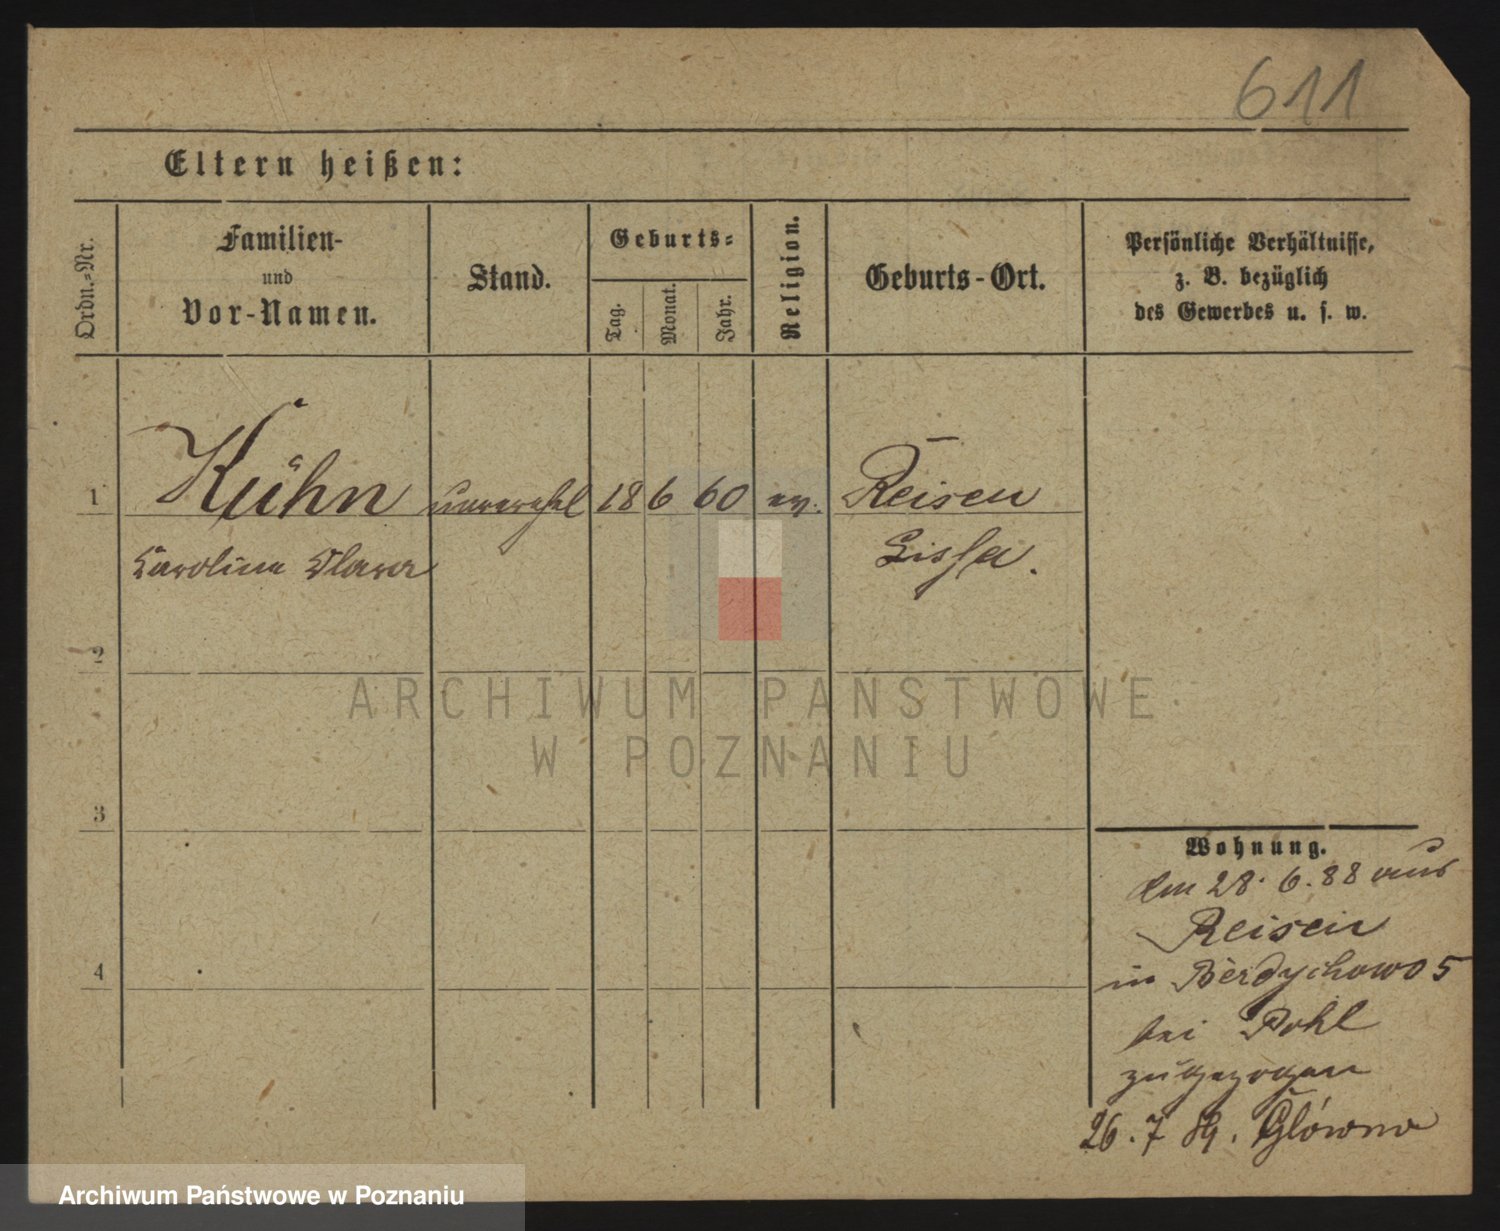 611
Eltern heißen:
Ordn.-Nr.
Familien-
und
Vor-Namen.
Stand.
Geburts-
Tag.
Monat.
Jahr.
Religion.
Geburts-Ort.
Persönliche Verhältnisse,
z. B. bezüglich
des Gewerbes u. s. w.
1 Kühn unverehel 18 6 60 ev. Reisen
Caroline Clara Lissa.
2
ARCHIWUM PAŃSTWOWE
W POZNANIU
3
Wohnung.
Am 28. 6. 88 aus
Reisen
4
in Berdychowo 5
bei Pohl
zugezogen
26. 7 89. Główno
Archiwum Państwowe w Poznaniu